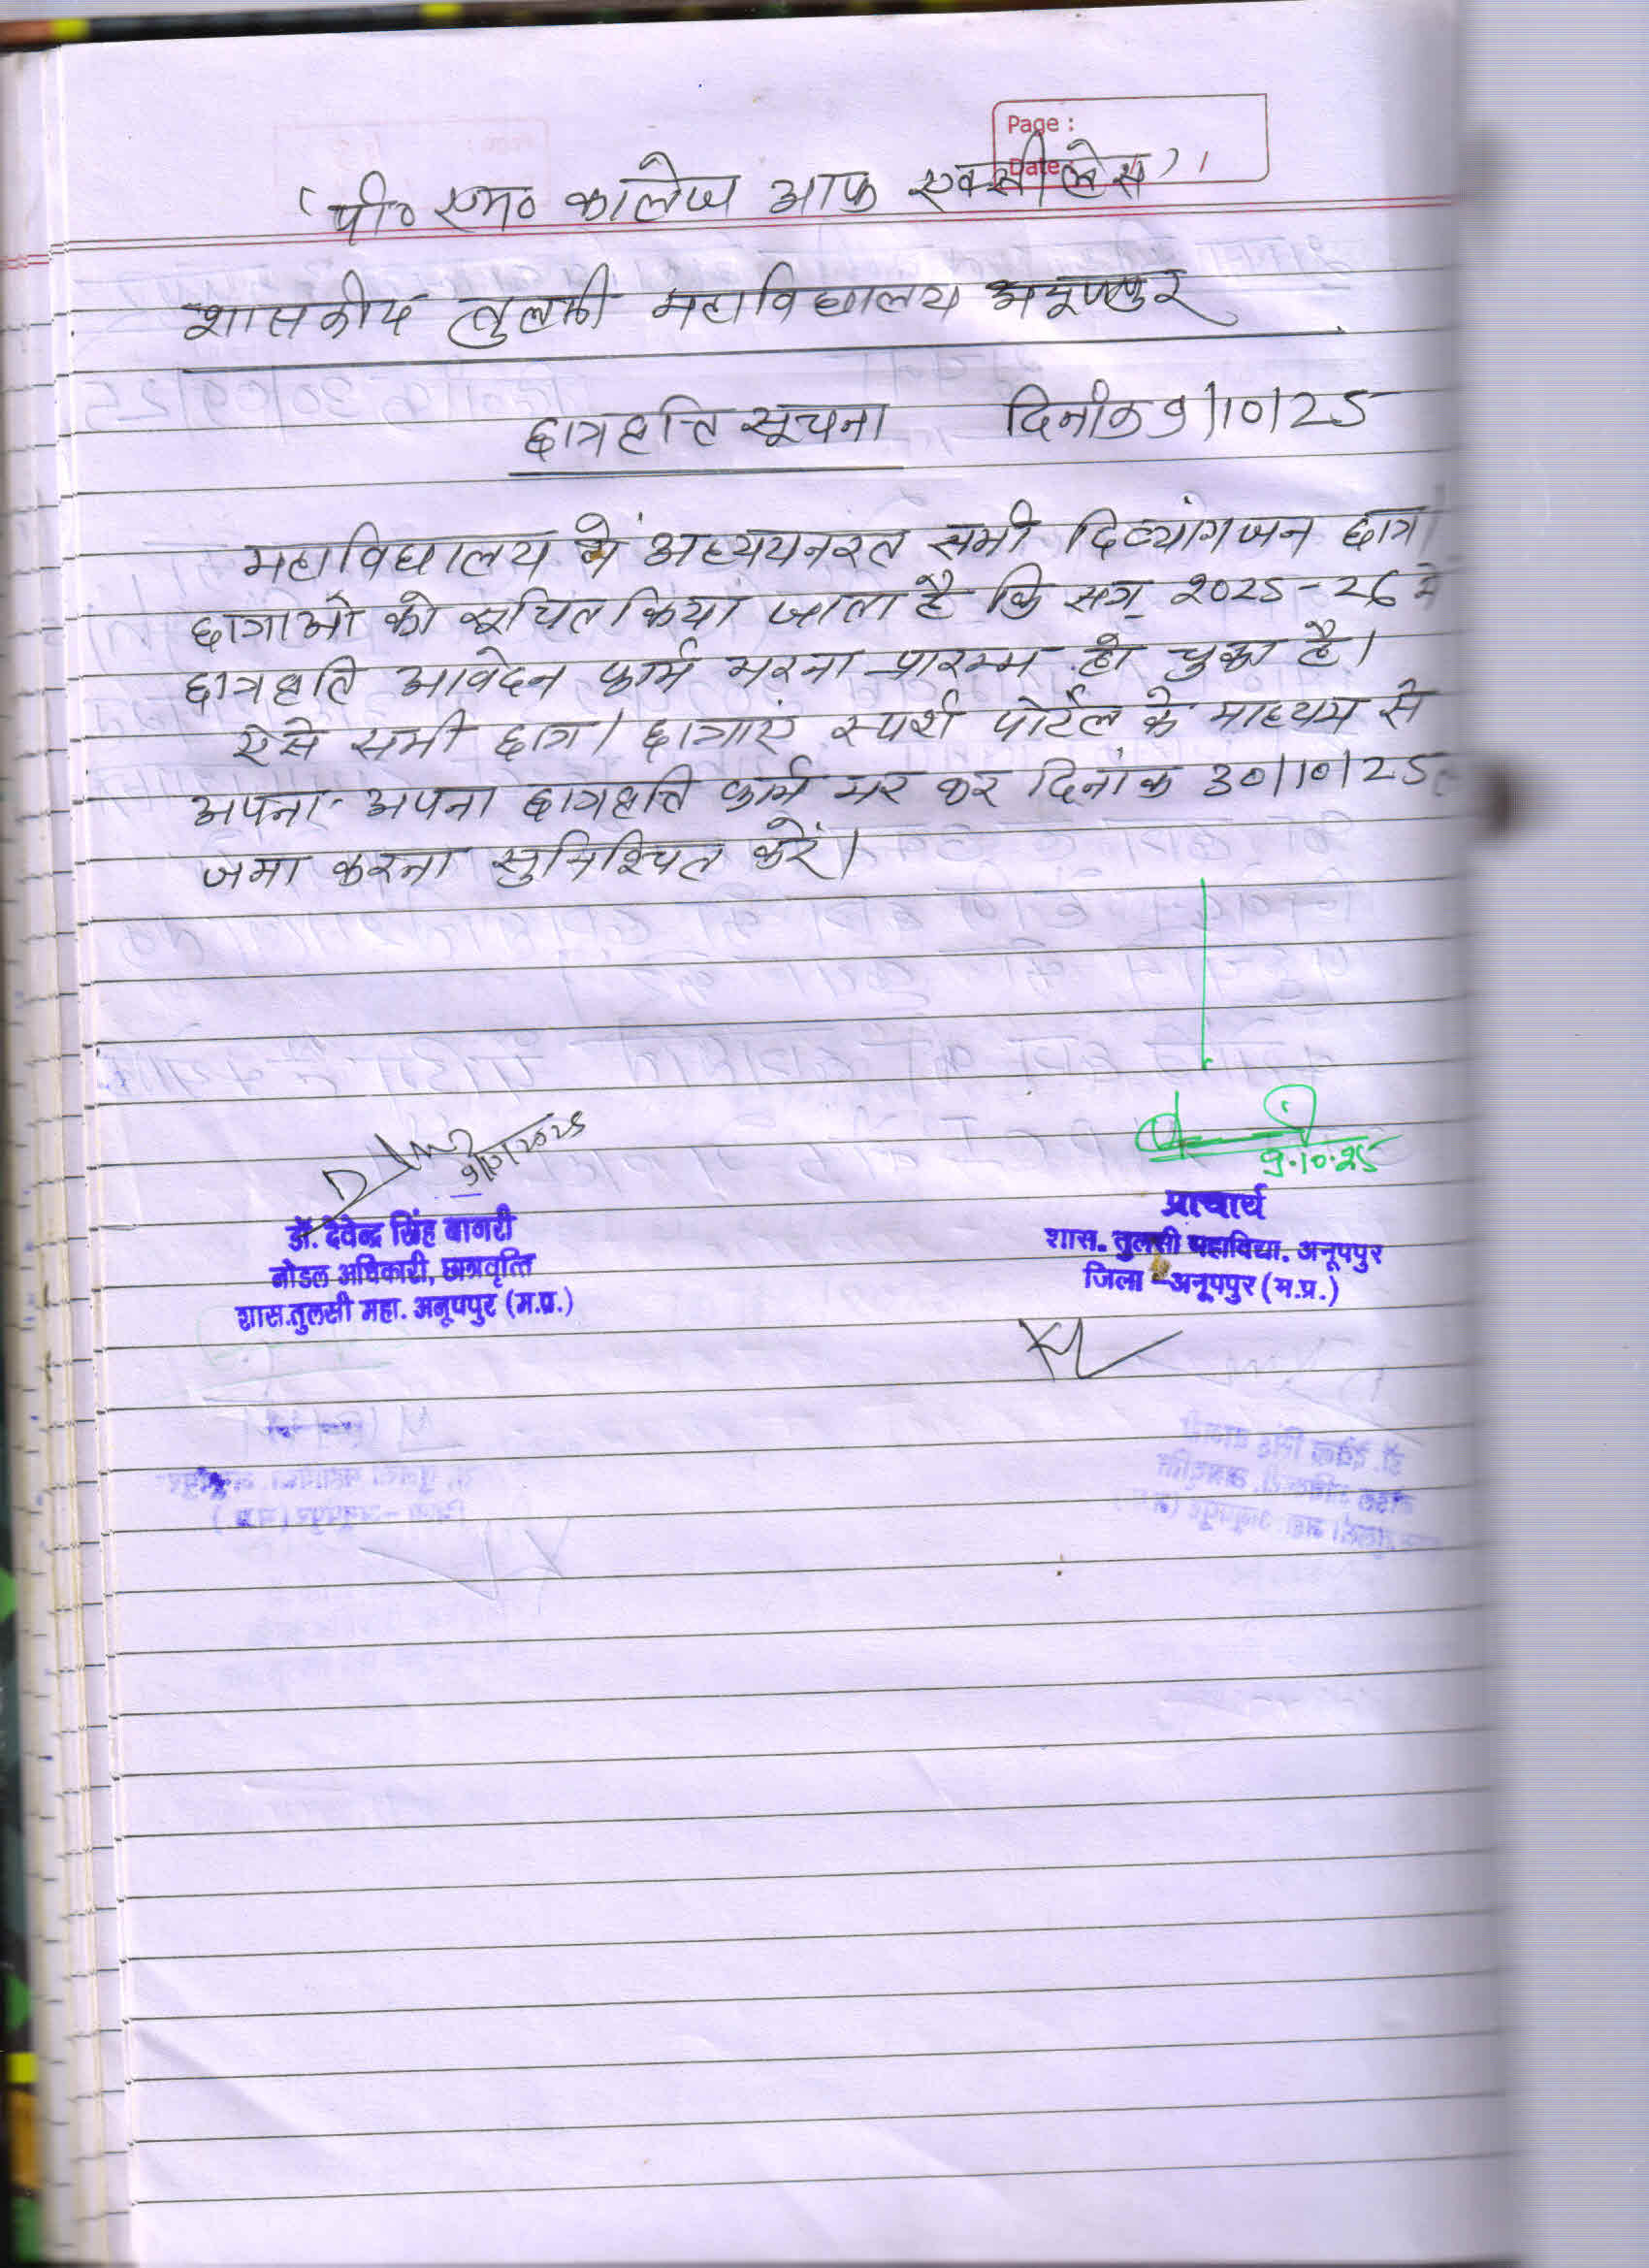 Page :
Date
(पी० एम० कालेज आफ एक्सीलेंस)
शासकीय तुलसी महाविद्यालय अनूपपुर
छात्रवृत्ति सूचना दिनांक 9/10/25
महाविद्यालय में अध्ययनरत सभी दिव्यांगजन छात्र/
छात्राओं को सूचित किया जाता है कि सत्र 2025-26 में
छात्रवृत्ति आवेदन फार्म भरना प्रारम्भ हो चुका है।
ऐसे सभी छात्र/छात्राएं स्पर्श पोर्टल के माध्यम से
अपना-अपना छात्रवृत्ति फार्म भर कर दिनांक 30/10/25
जमा करना सुनिश्चित करें।
9.10.25
डॉ. देवेन्द्र सिंह बागरी
नोडल अधिकारी, छात्रवृत्ति
शास.तुलसी महा. अनूपपुर (म.प्र.)
प्राचार्य
शास. तुलसी महाविद्या. अनूपपुर
जिला -अनूपपुर (म.प्र.)